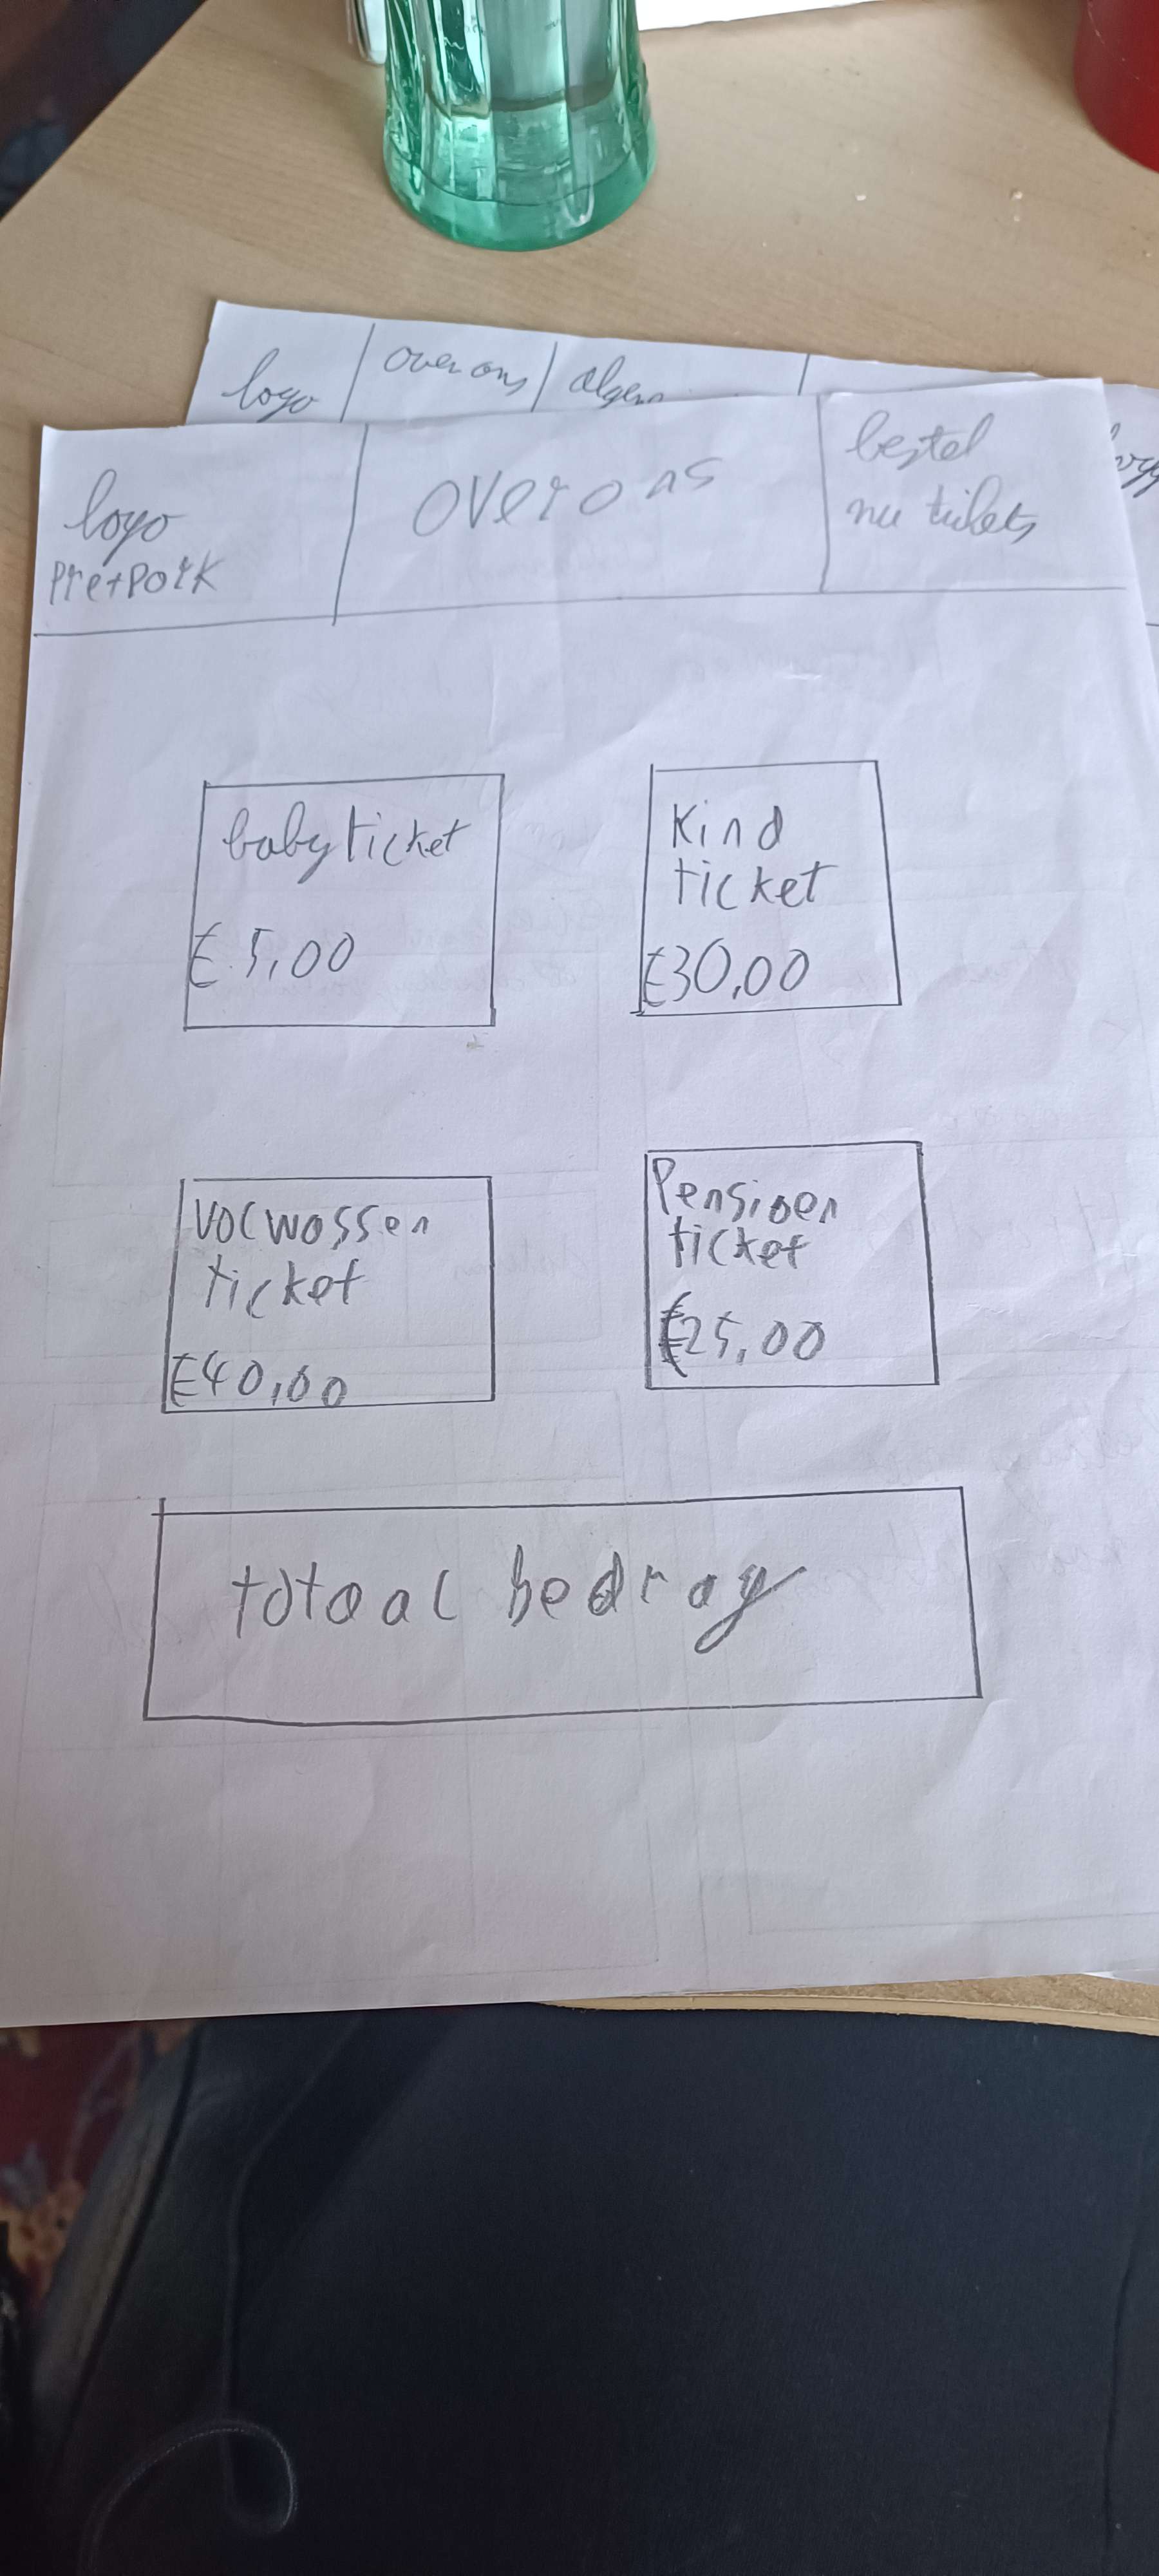 logo
over ons
logo
pretpark
over ons
bestel
nu tickets
babyticket
€ 5,00
Kind
ticket
€30,00
volwassen
ticket
€40,00
Pensioen
ticket
€25,00
totaal bedrag